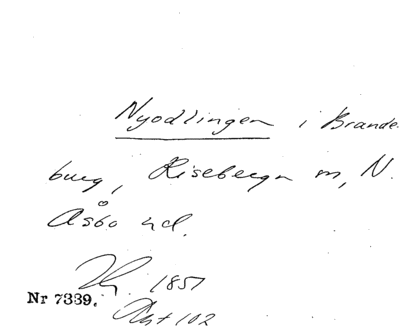 Nyodlingen i Brande
burg, Riseberga m, N.
Åsbo hd.
1851
Nr 7339. Akt 102